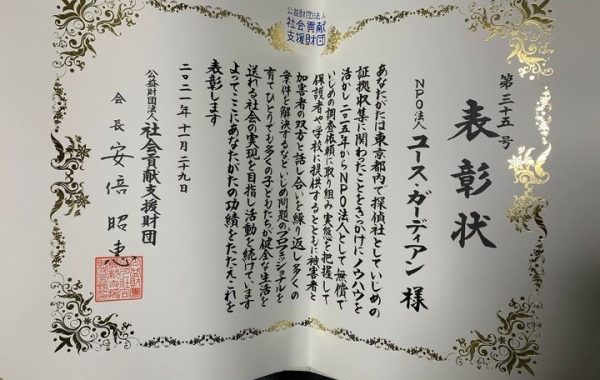 公益財団法人
社会貢献
支援財団
第三十五号
表彰状
NPO法人 ユース・ガーディアン 様
あなたがたは東京都内で探偵社としていじめの
証拠収集に関わったことをきっかけにノウハウを
活かし二〇一五年からNPO法人として無償で
いじめの調査依頼に取り組み実態を把握して
保護者や学校に提供するとともに被害者と
加害者の双方と話し合いを繰り返し多くの
案件を解決するなどいじめ問題のプロフェッショナルを
育てひとりでも多くの子どもたちが健全な生活を
送れる社会の実現を目指し活動を続けています
よってここにあなたがたの功績をたたえこれを
表彰します
二〇二一年十一月二十九日
公益財団法人 社会貢献支援財団
会長 安倍昭恵